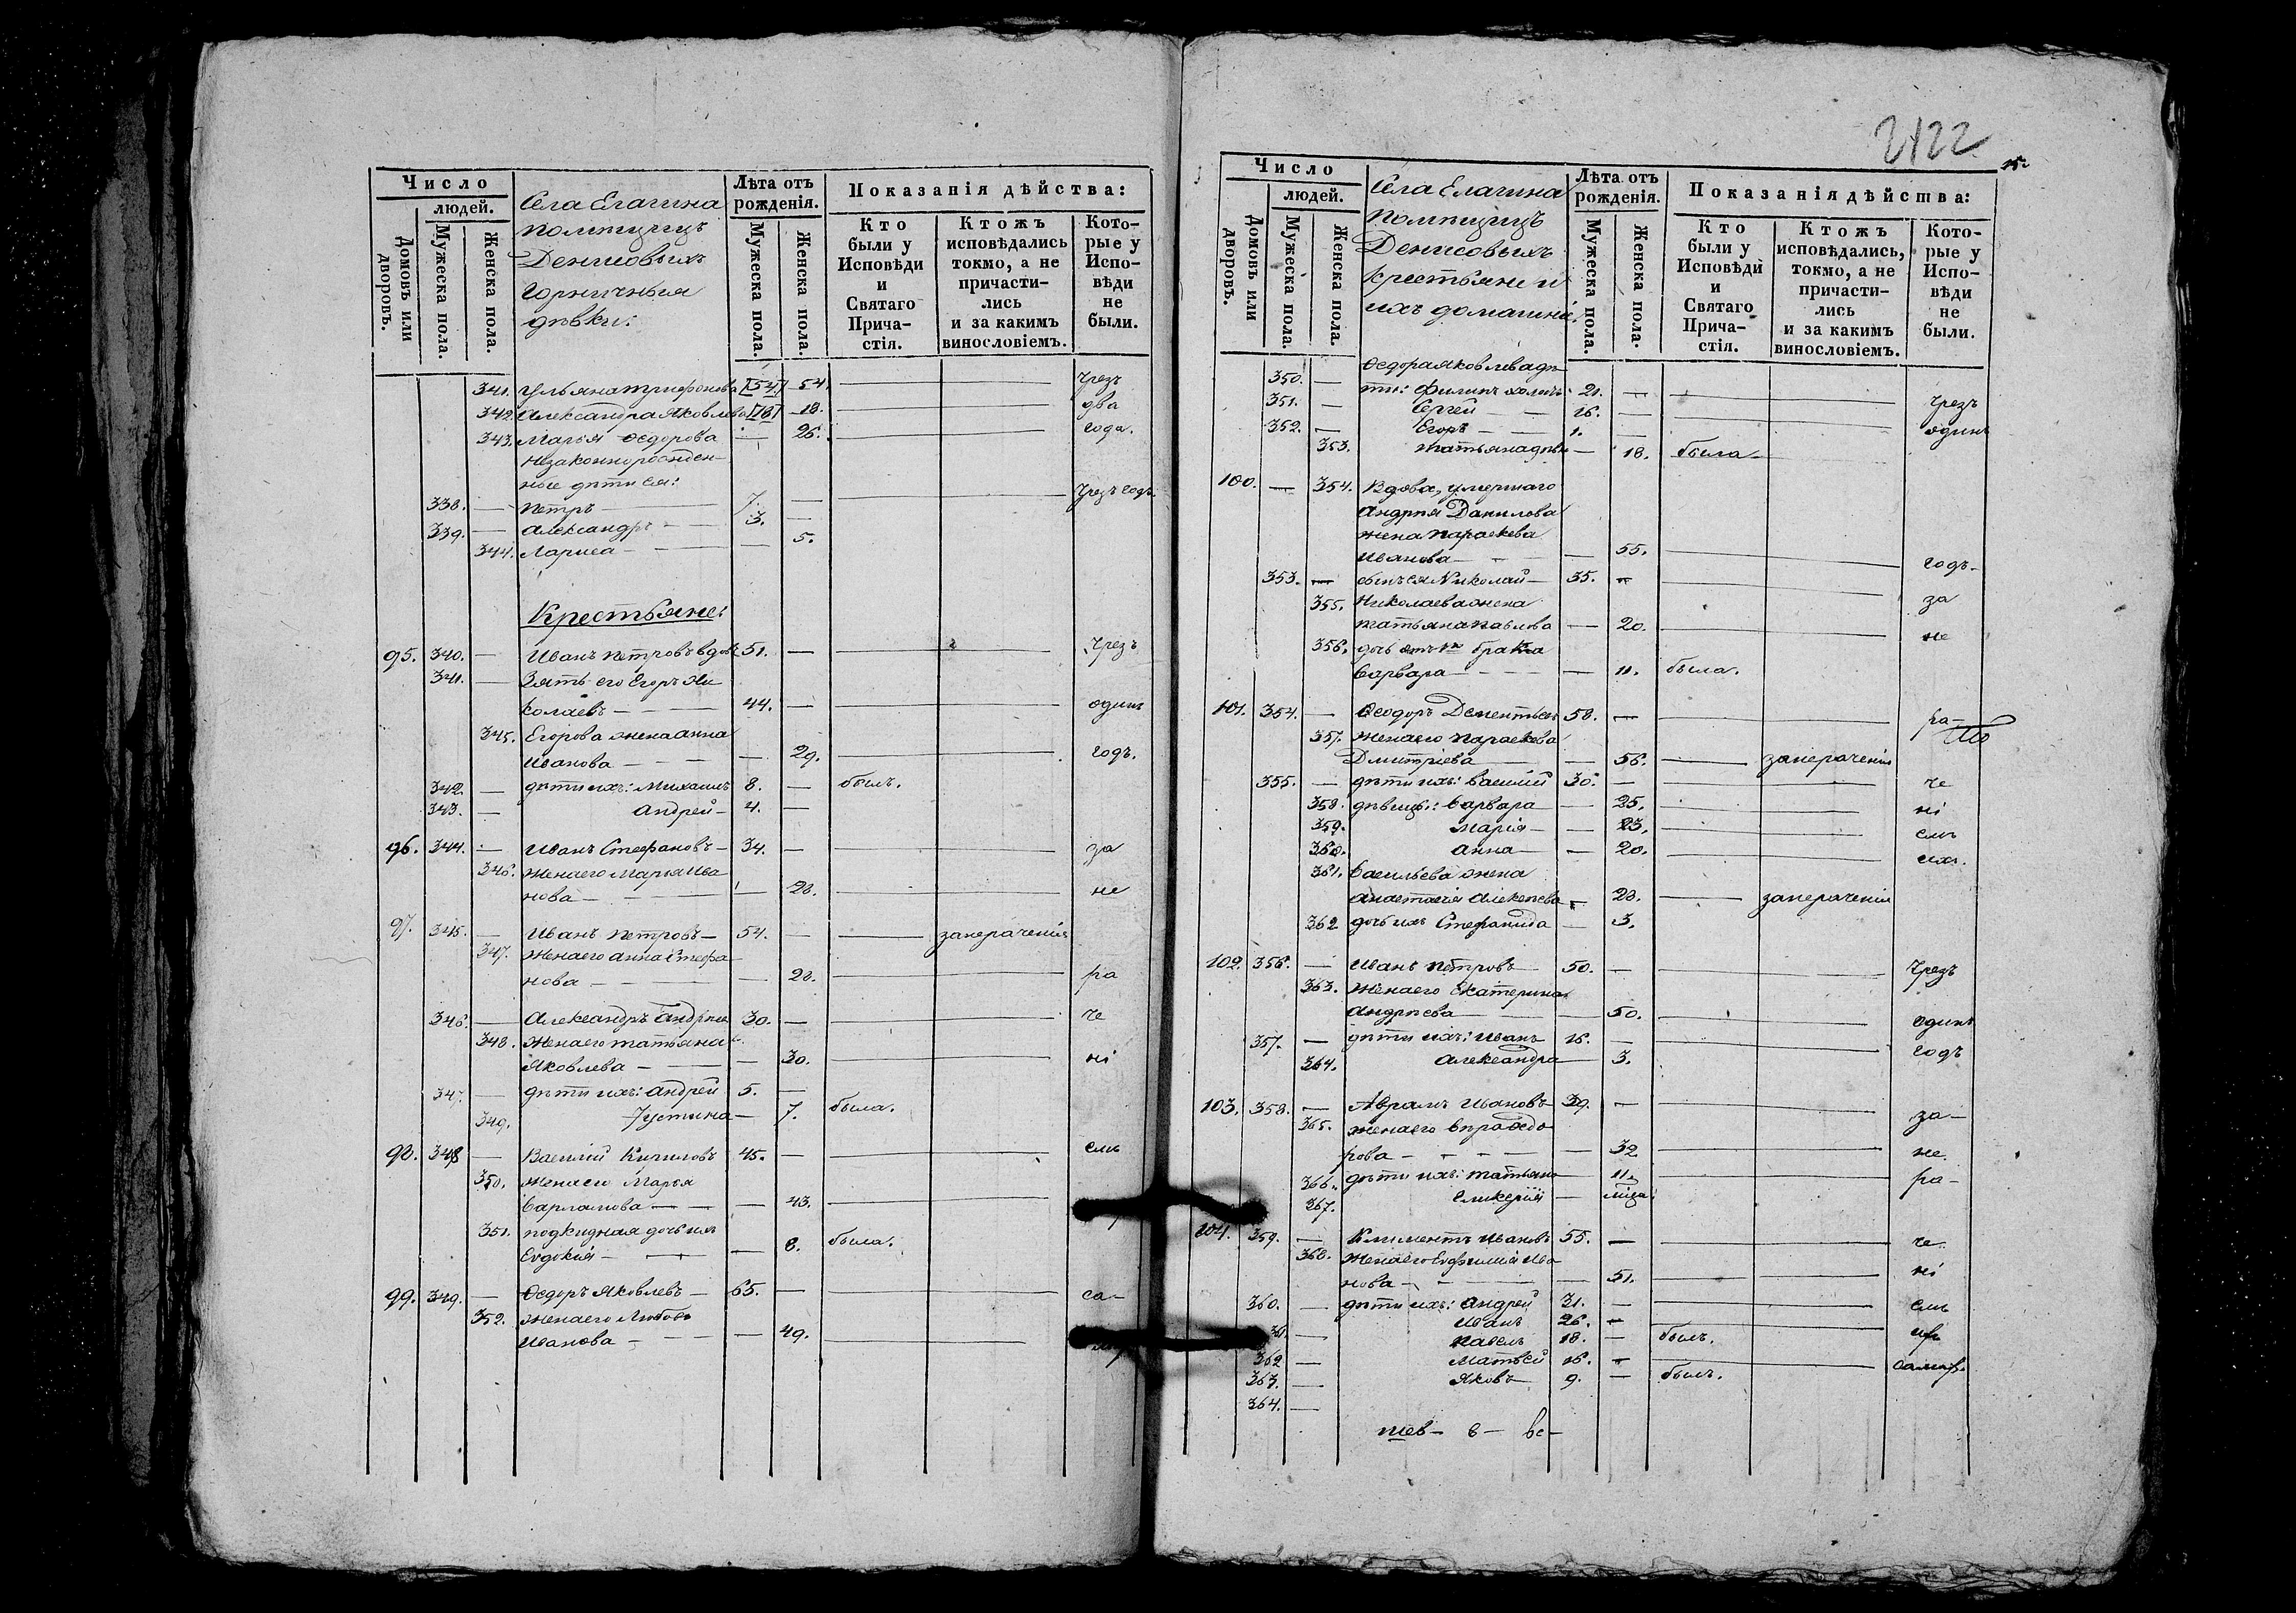 Число
людей.
Домовъ или дворовъ.
Мужеска пола.
Женска пола.
Села Елагина
помѣщицъ
Денисовыхъ
Горничныя
дѣвки:
Лѣта отъ рожденія.
Мужеска пола.
Женска пола.
Показанія дѣйства:
Кто были у Исповѣди и Святаго Прича-стія.
Ктожъ исповѣдались токмо, а не причасти-лись и за какимъ винословіемъ.
Кото-рые у Испо-вѣди не были.
341. Ульяна Трифонова [54] 54. — — чрезъ
342. Александра Яковлева [18] 18. — — два
343. Марья Ѳедорова — 26. — — года.
незаконнорожден-
ные дѣти ея:
338. — Петръ — 7. — — чрезъ годъ.
339. — Александръ — 3. —
344. Лариса — — 5.
Крестьяне:
95. 340. — Иванъ Петровъ вдовъ 51. — — чрезъ
341. — Зять его Егоръ Ни
колаевъ — 44. — — одинъ
345. Егорова жена Анна
Иванова — — 29. — — годъ.
342. — дѣти ихъ: Михаилъ 8. — былъ.
343. — Андрей — 4. —
96. 344. — Иванъ Стефановъ — 34. — — за
346. Жена его Марья Ива
нова — — 28. — — не
97. 345. — Иванъ Петровъ — 54. — — занерачение
347. Жена его Анна Стефа
нова — — 28. — — ра
346. — Александръ Андреев 30. — — че
348. Жена его Татьяна
Яковлева — — 30. — — ні
347. — дѣти ихъ: Андрей 5. —
349. Устина — 7. была.
98. 348 — Василий Кириловъ 45. — — емъ
350. Жена его Марья
Варламова — — 43. —
351. подкидная дочь ихъ
Евдокия — — 8. была.
99. 349. — Ѳедоръ Яковлевъ — 65. — — са-
352. Жена его Любовь
Иванова — — 49. —
2422
Число
людей.
Домовъ или дворовъ.
Мужеска пола.
Женска пола.
Села Елагина
помѣщицъ
Денисовыхъ
крестьяне и
ихъ домашніе.
Лѣта отъ рожденія.
Мужеска пола.
Женска пола.
Показанія дѣйства:
Кто были у Исповѣди и Святаго Прича-стія.
Ктожъ исповѣдались, токмо, а не причасти-лись и за какимъ винословіемъ.
Кото-рые у Испо-вѣди не были.
Ѳедора Яковлева дѣ-
350. — ти: Филипъ холостъ 21. —
351. — Сергей — 16. — — чрезъ
352. — Егоръ — 1. — одинъ
353. Татьяна дѣвк — 18. была —
100. — 354. Вдова, умершаго
Андрея Данилова
жена Параскева
Иванова — — 55. — годъ —
353. — сынъ ея Николай — 35. — — за
355. Николаева жена
Татьяна Павлова — 20. — не
356. дочь отъ 1го брака
Варвара — — 11. была.
101. 354. — Ѳеодоръ Дементьев 58. — — ра-
357. Жена его Параскева
Дмитріева — — 56. — занерачение
355. — дѣти ихъ: Василий 30. — — че
358. дѣвицы: Варвара — 25. — ні
359. Марія — — 23. — емъ
360. Анна — — 20. — ихъ.
361. Васильева жена
Анастасія Алексѣева — 28. — занерачение
362 дочь ихъ Стефанида — 3.
102. 356. — Иванъ Петровъ — 50. — — чрезъ
363. Жена его Екатерина
Андреева — — 50. — одинъ
357. — дѣти ихъ: Иванъ 16. — — годъ
364. Александра — 3.
103. 358. — Аврамъ Ивановъ 39. — — за-
365. Жена его
рова — — 32 — не
366. дѣти ихъ: Татьяна — 11. — ра-
367. Гликерия —
104. 359. — Климентъ Ивановъ 55. — — че
368. Жена его Евфимия Ива
нова — — 51. — — ні
360. — дѣти ихъ: Андрей 31. — — емъ
361 — Иванъ 26. —
362 — Павелъ 18. — былъ.
363. — Матвей 16. —
364. — Яковъ 9. — былъ.